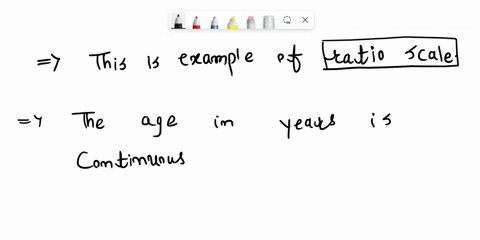 => This is example of ratio scale.
=> The age in years is
Continuous